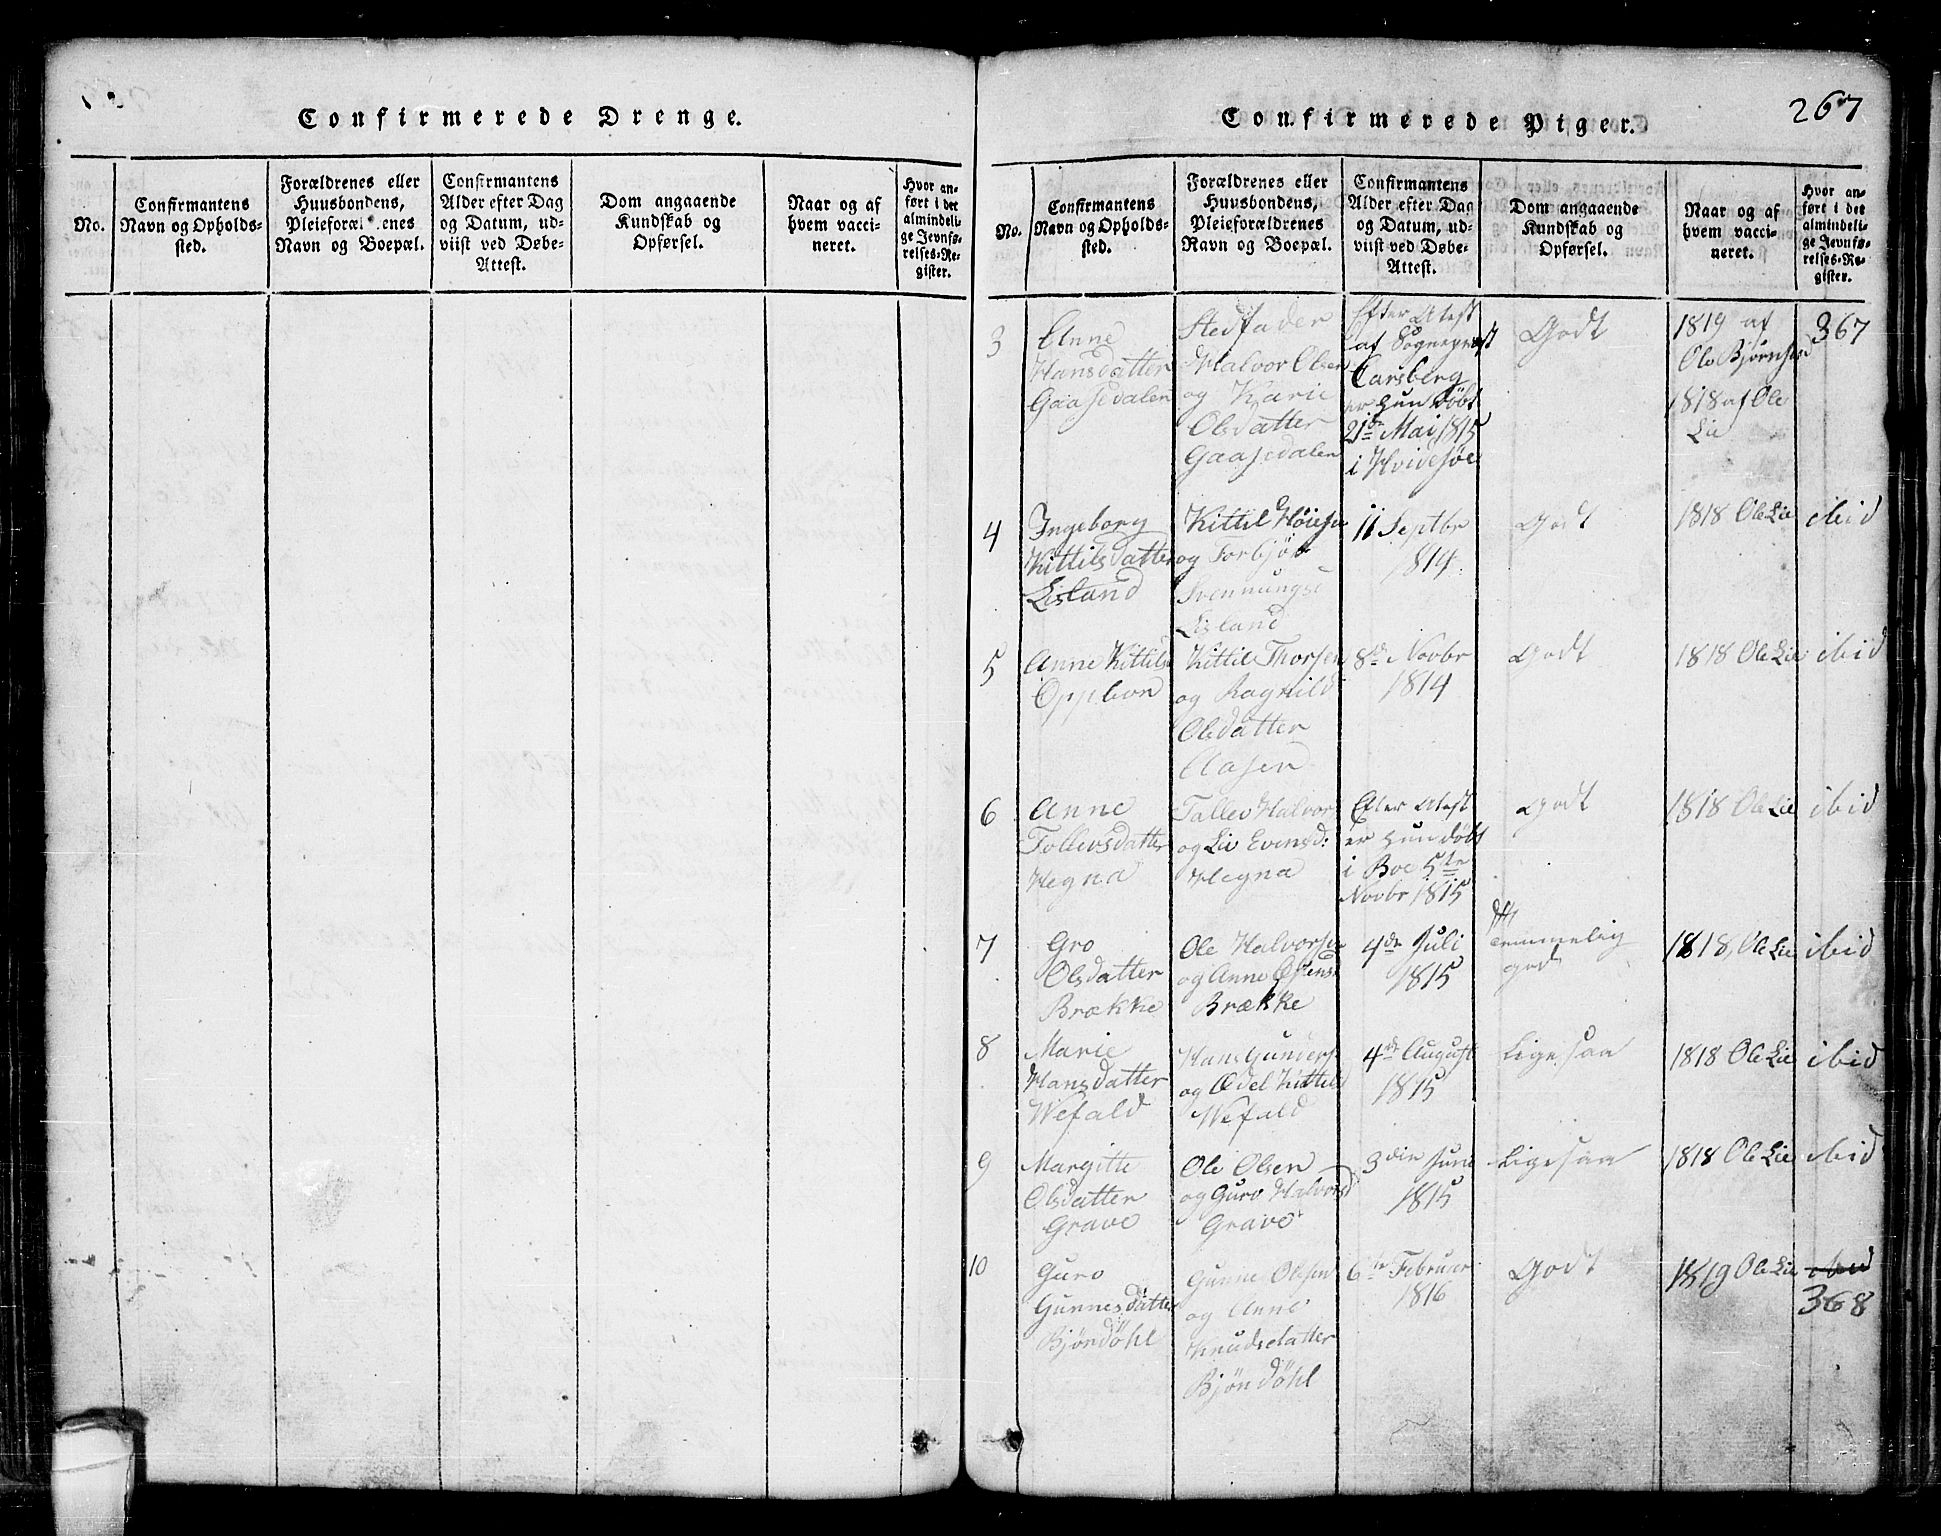 Confirmerede Drenge.
No.
Confirmantens
Navn og Opholds-
sted.
Forældrenes eller
Huusbondens,
Pleieforæl enes
Navn og Boepæl.
Confirmantens
Alder efter Dag
og Datum, ud-
viist ved Døbe-
Attest.
Dom angaaende
Kundskab og
Opførsel.
Naar og af
hvem vacci-
neret.
Hvor an-
ført i det
almindeli-
ge Jevnfø-
relses-Re-
gister.
267
Confirmerede Piger.
No.
Confirmantens
Navn og Opholds-
sted.
Forældrenes eller
Huusbondens,
Pleieforældrenes
Navn og Boepæl.
Confirmantens
Alder efter Dag
og Datum, ud-
viist ved Døbe-
Attest.
Dom angaaende
Kundskab og
Opførsel.
Naar og af
hvem vacci-
neret.
Hvor an-
ført i det
almindeli-
ge Jevnfø-
relses-Re-
gister.
3
Anne
Hansdatter
Gaasedalen
Stedfader
Halvor Olsen
og Karie
Olsdatter
Gaasedalen
Efter Atest
af Sogneprest
Carsberg
er hun døbt
21de Mai 1815
i Hvidesøe
Godt
1819 af
Ole Bjørnsen
1818 af Ole
Lie
367
4
Ingeborg
Kittilsdatter
Lisland
Kittil Høiesen
og Torbjør
Svennungs
Lisland
11 Septbr
1814
Godt
1818 Ole Lie
ibid
5
Anne Kittils
Oppebøn
Kittil Thorsen
og Ragnild
Olsdatter
Aasen
8de Novbr
1814
Godt
1818 Ole Lie
ibid
6
Anne
Tollevsdatter
Hegna
Tallev Halvors
og Liv Evensd:
Hegna
Efter Atest
er hun døbt
i Boe 5te
Novbr 1815
Godt
1818 Ole Lie
ibid
7
Gro
Olsdatter
Brække
Ole Halvorsen
og Anne Østens
Brække
4de Juli
1815
temmelig
god
1818, Ole Lie
ibid
8
Marie
Hansdatter
Wefald
Hans Gunders
og Ædel Kittels
Wefald
4de August
1815
Ligesaa
1818 Ole Lie
ibid
9
Margitte
Olsdatter
Grave
Ole Olsen
og Guro Halvorsd
Grave
3die Juni
1815
Ligesaa
1818 Ole Lie
ibid
10
Guro
Gunnesdatter
Bjøndøhl
Gunne Olesen
og Anne
Knudsdatter
Bjøndøhl
6te Februar
1816
Godt
1819 Ole Lie
ibid
368